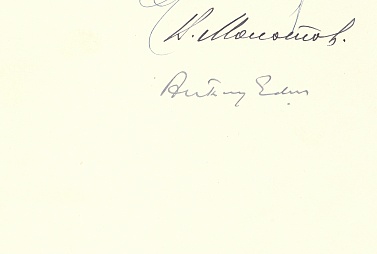 В. Молотов.
Anthony Eden